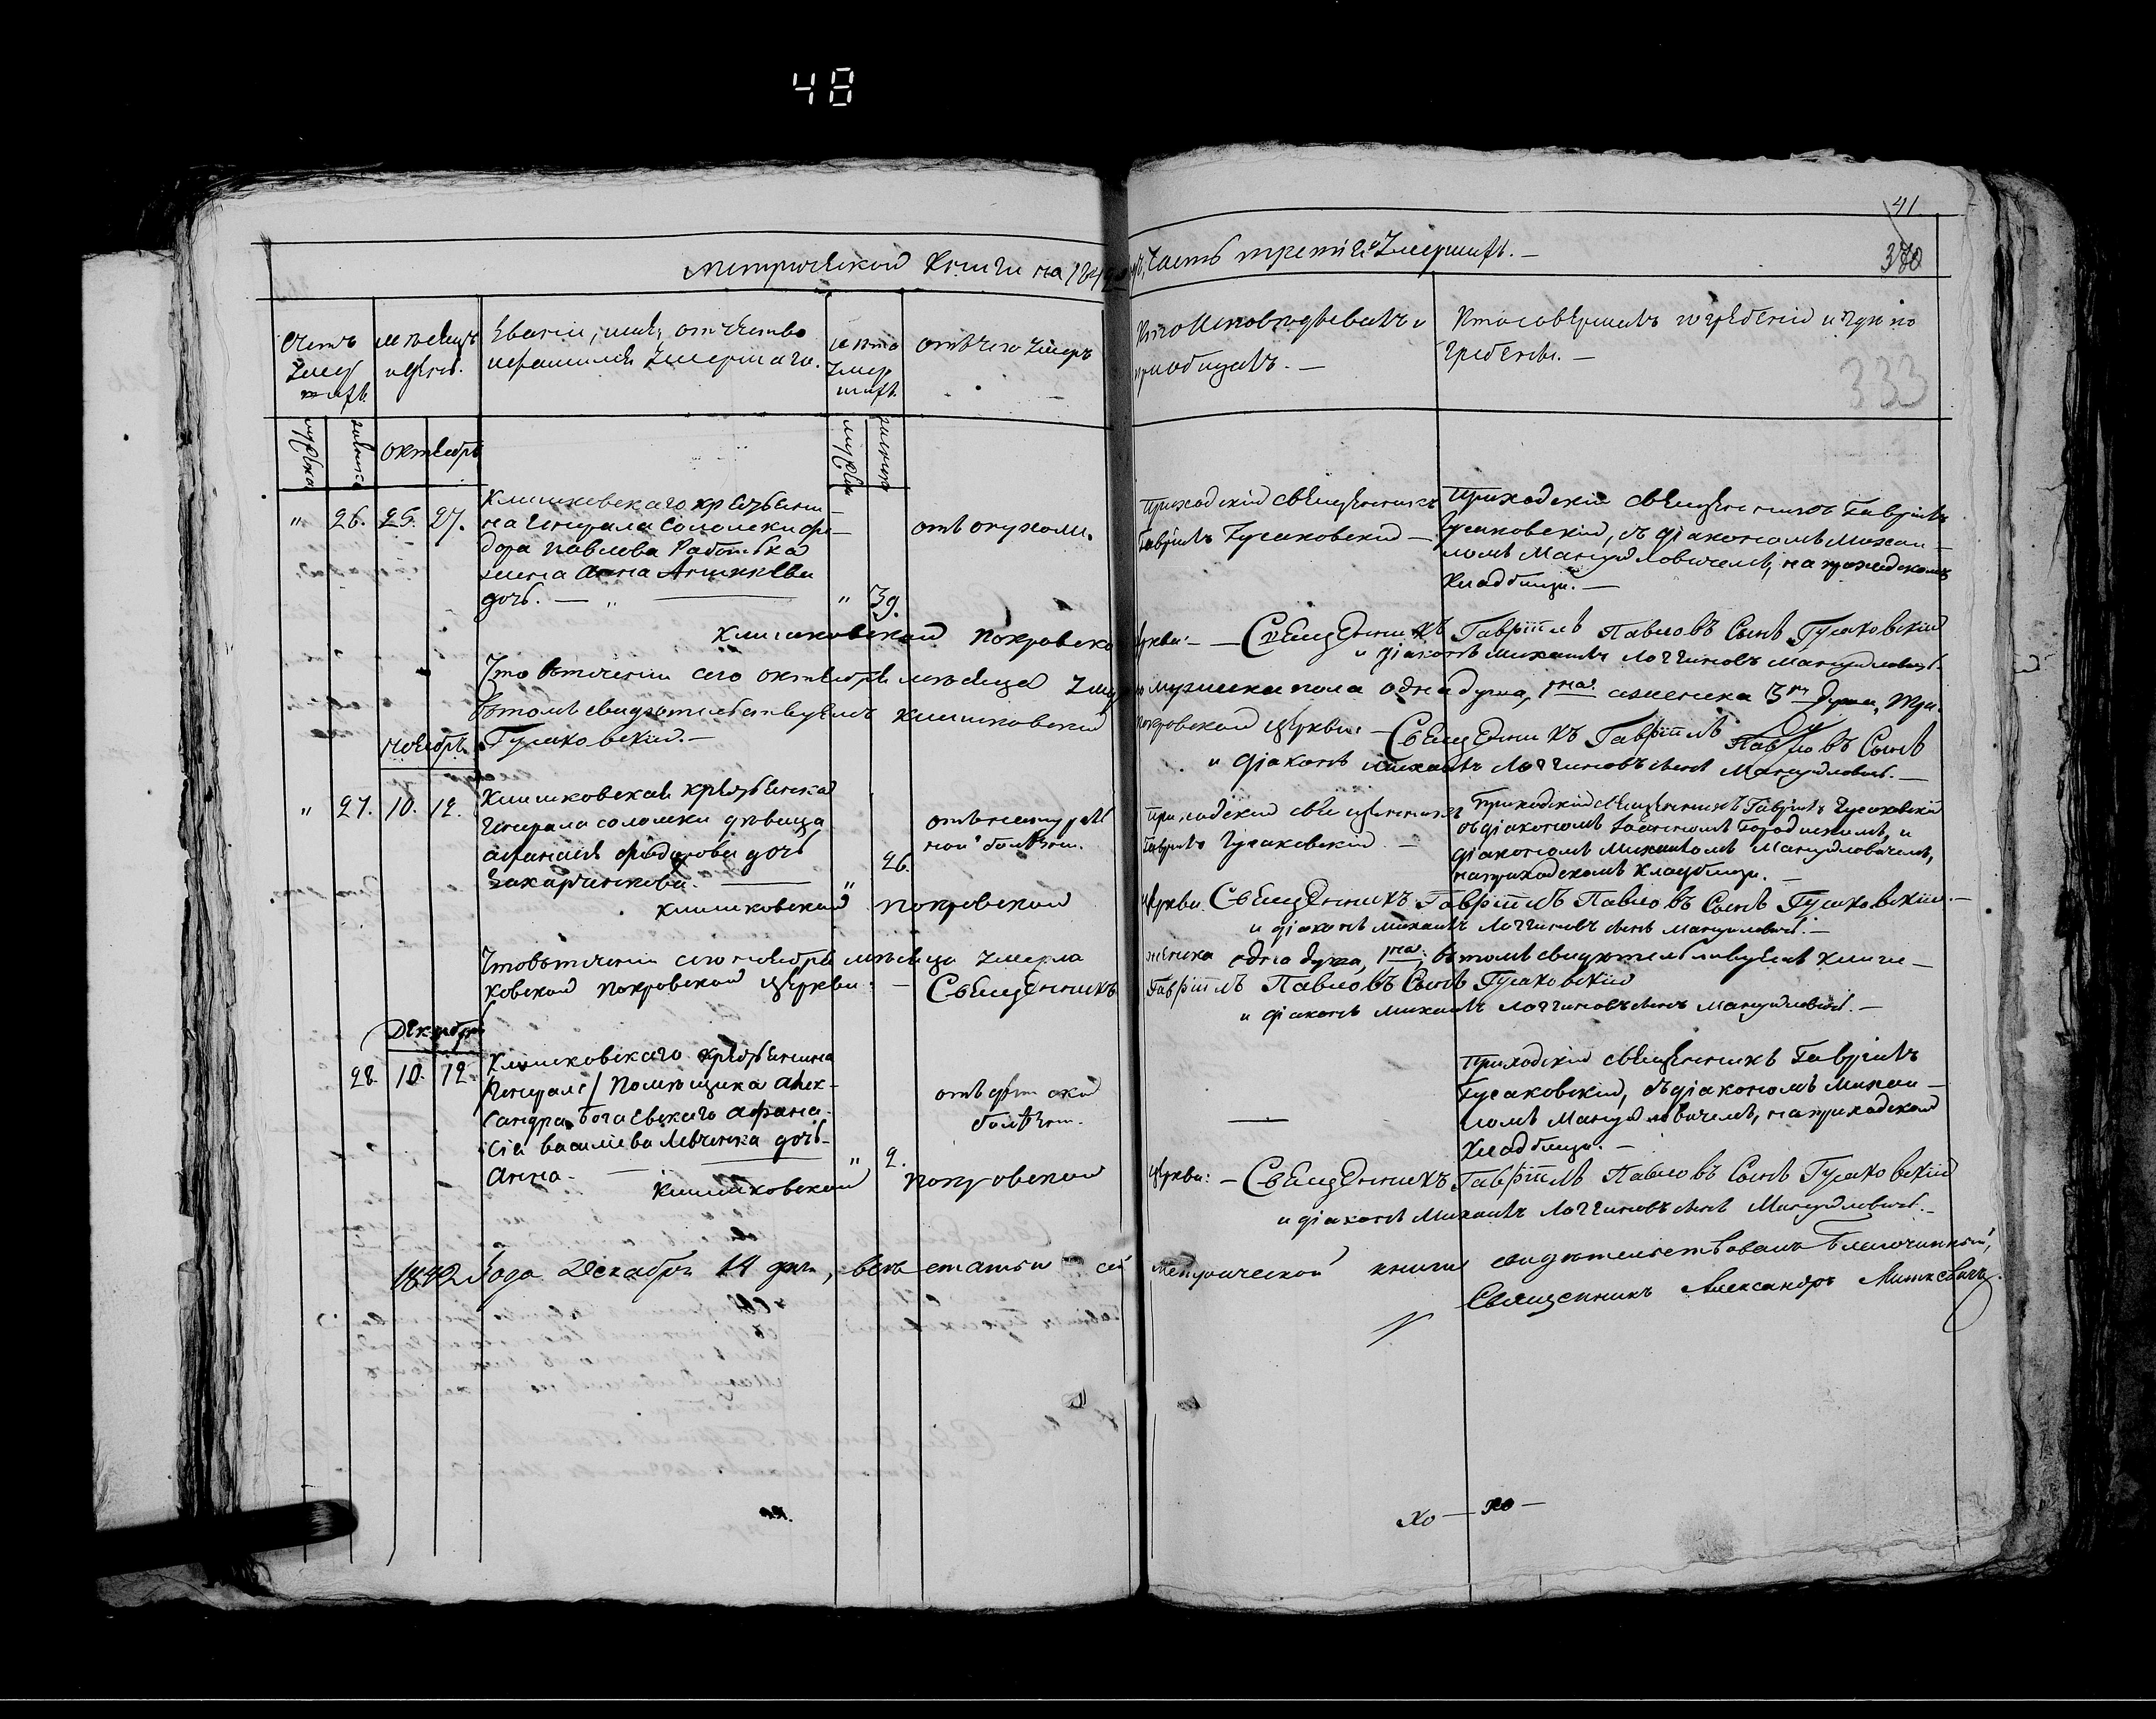 48
41
370
333
Метрической Книги на 1842 Часть третія Умершихъ. —
Счетъ умершихъ.
мѣсяцъ и день.
Званіе, имя, отчество и фамилія умершаго.
лѣта умершихъ.
отъ чего умеръ
Кто исповѣдывалъ и пріобщалъ. —
Кто совершалъ погребеніе и гдѣ погребены. —
мужска
женска
октября
мужска
женска
" 26. 25. 27.
Клишковскаго крестьянина
Генерала Соломки Фе-
дора Павлова
жена Анна
дочь. — " — " 39.
отъ опухоли.
приходскій священникъ
Гавріилъ Гусаковскій —
Приходскій священникъ Гавріилъ
Гусаковскій, съ діакономъ Михаи-
ломъ Мануйловичемъ, на приходскомъ
кладбищи. —
Клишковской Покровской церкви: — Священникъ Гавріилъ Павловъ Сынъ Гусаковскій
и діаконъ Михаилъ Логгиновъ Мануйловичъ
Что втеченіи сего октября мѣсяца умерло мужеска пола одна душа, 1на. а женска 3 души, три.
въ томъ свидѣтельствуемъ Клишковской Покровской церкви: — Священникъ Гавріилъ Павловъ Сынъ
Гусаковскій. —
и діаконъ Михаилъ Логгиновъ сынъ Мануйловичъ. —
ноябрь.
" 27. 10. 12.
Клишковская крестьянка
Генерала Соломки дѣвица
Афанасія Федорова дочь
Захарченкова. — " 26.
отъ
ной болѣзни.
Приходскій священникъ
Гавріилъ Гусаковскій. —
Приходскій священникъ Гавріилъ Гусаковскій
съ діакономъ Іоанномъ, и
діакономъ Михаиломъ Мануйловичемъ,
на приходскомъ кладбищи. —
Клишковской Покровской церкви Священникъ Гавріилъ Павловъ Сынъ Гусаковскій. —
и діаконъ Михаилъ Логгиновъ сынъ Мануйловичъ. —
Что втеченіи сего ноября мѣсяца умерла женска одна душа, 1на; въ томъ свидѣтельствуемъ Клиш-
ковской Покровской церкви: — Священникъ Гавріилъ Павловъ Сынъ Гусаковскій
и діаконъ Михаилъ Логгиновъ сынъ Мануйловичъ. —
Декабрь
28. 10. 12.
Клишковскаго крестьянина
помѣщика Алек-
сандра Богаевскаго Афана-
сія Васильева Левченка дочь
Анна — " 2.
отъ дѣтской
болѣзни.
—
Приходскій священникъ Гавріилъ
Гусаковскій, съ діакономъ Михаи-
ломъ Мануйловичемъ, на приходскомъ
кладбищи. —
Клишковской Покровской церкви: — Священникъ Гавріилъ Павловъ Сынъ Гусаковскій
и діаконъ Михаилъ Логгиновъ сынъ Мануйловичъ. —
1842 Года Декабря 14 дня, всѣ статьи сей метрической книги свидѣтельствовалъ Благочинный,
Священникъ Александръ